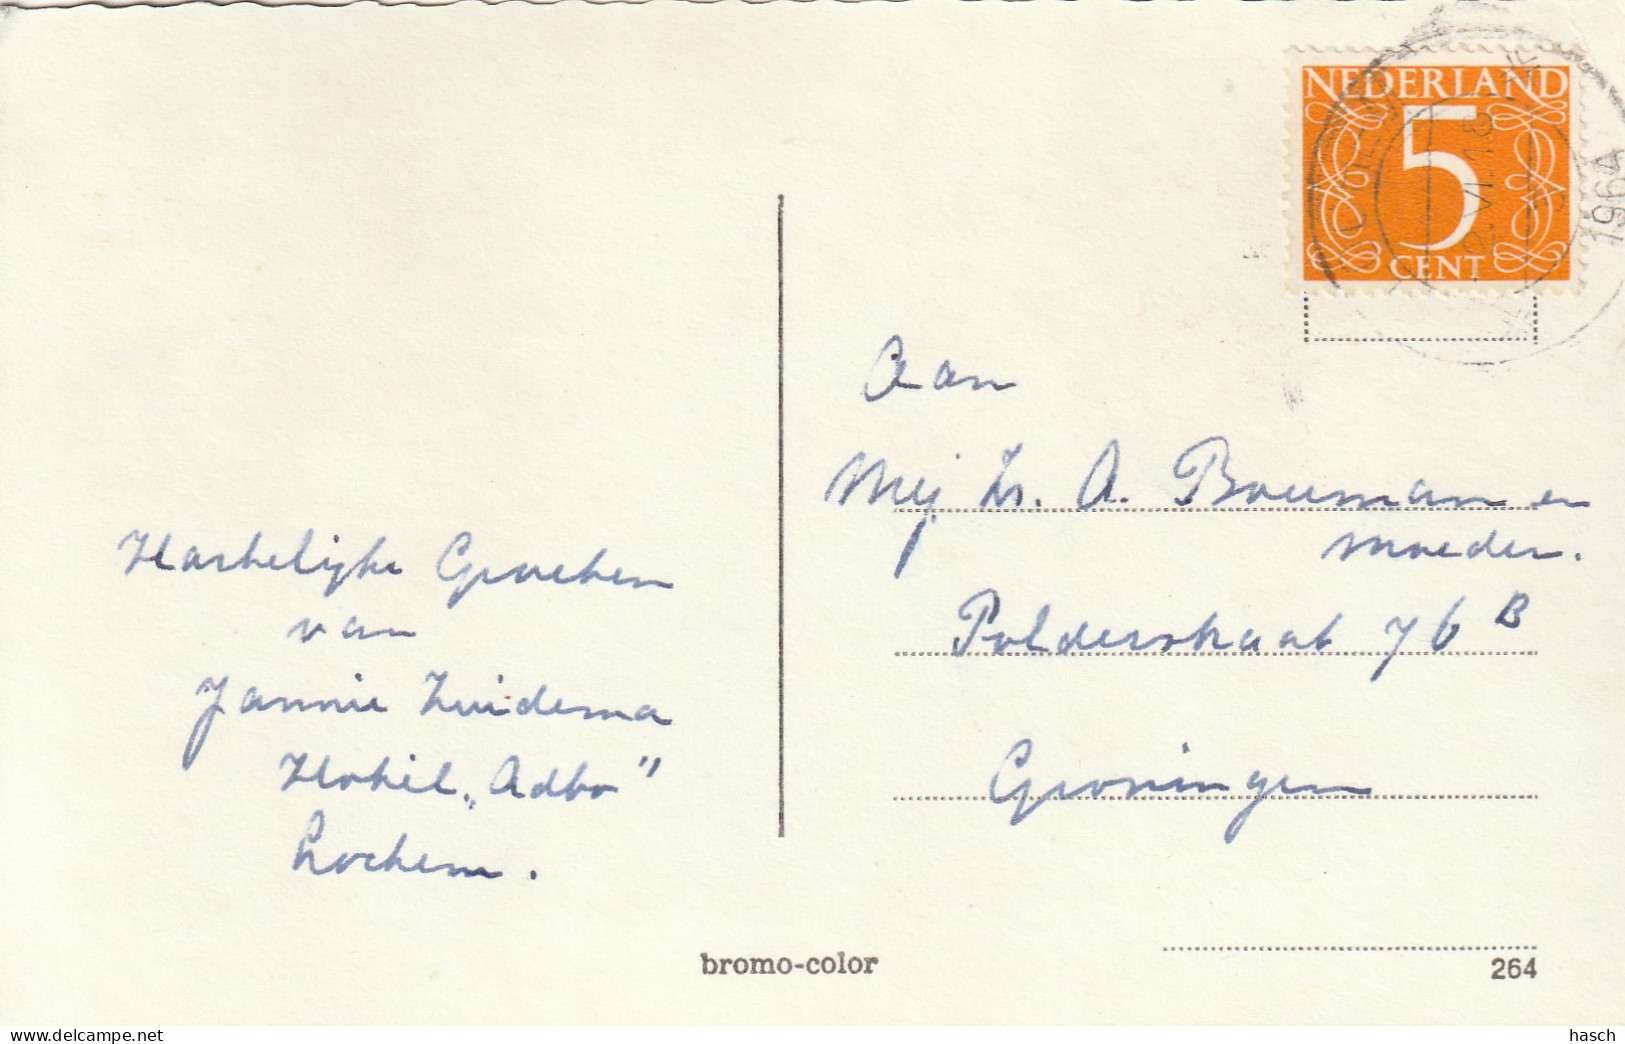 NEDERLAND
5
CENT
1964
Aan
Mej Zr. A. Bouman en
moeder.
Polderstraat 76 B
Groningen
Hartelijke Groeten
van
Jannie Zuidema
Hotel "Adbo"
Lochem.
bromo-color
264
www.delcampe.net
hasch